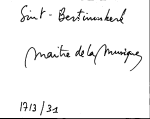 Sint-Bertinuskerk
maitre de la musique
1713/31